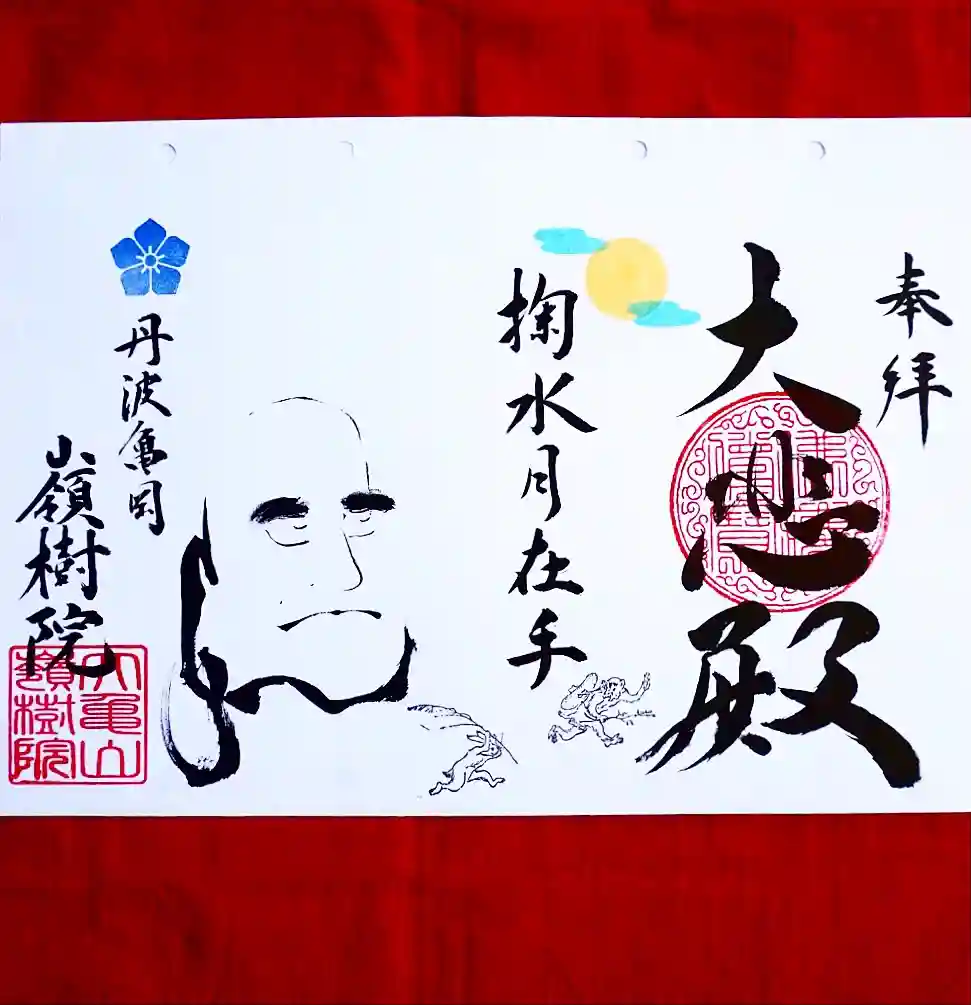 奉拝
大悲殿
掬水月在手
丹波亀岡
嶺樹院
大亀山
嶺樹院